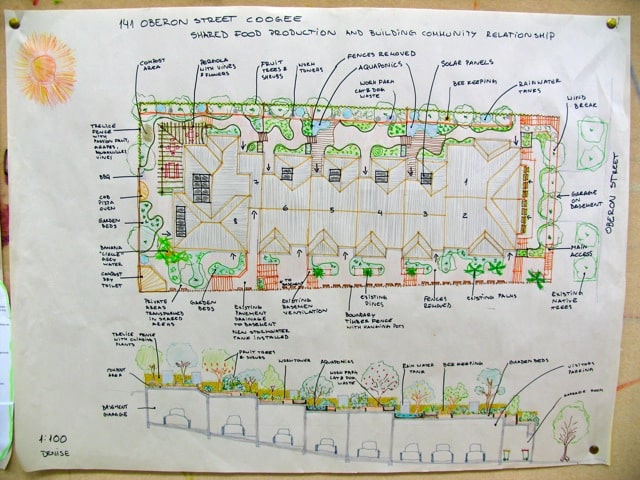 141 OBERON STREET COOGEE
SHARED FOOD PRODUCTION AND BUILDING COMMUNITY RELATIONSHIP
COMPOST
AREA
PERGOLA
WITH VINES
& FLOWERS
FRUIT
TREES &
SHRUBS
WORM
TOWERS
FENCES REMOVED
AQUAPONICS
WORM FARM
CAT & DOG
WASTE
SOLAR PANELS
BEE KEEPING
RAINWATER
TANKS
WIND
BREAK
TRELICE
FENCE
WITH
PASSION FRUIT,
VINES
BBQ
COB
PIZZA
OVEN
GARDEN
BEDS
BANANA
"CIRCLE"
GREY
WATER
COMPOST
DRY
TOILET
8
7
6
5
4
3
2
1
OBERON STREET
GARAGE
ON
BASEMENT
MAIN
ACCESS
EXISTING
NATIVE
TREES
PRIVATE
AREAS
TRANSPORMED
IN SHARED
AREAS
GARDEN
BEDS
EXISTING
PAVEMENT
DRAINAGE
TO BASEMENT
NEW STORMWATER
TANK INSTALLED
EXISTING
BASEMENT
VENTILATION
EXISTING
PINES
BOUNDARY
TIMBER FENCE
WITH HANGING POTS
FENCES
REMOVED
EXISTING PALMS
TRELICE FENCE
WITH CLIMBING
PLANTS
COMPOST
AREA
FRUIT TREES
& SHRUBS
WORM TOWER
AQUAPONICS
WORM FARM
CAT & DOG
WASTE
RAIN WATER
TANK
BEE KEEPING
GARDEN BEDS
VISITORS
PARKING
BASEMENT
GARAGE
1:100
DENISE